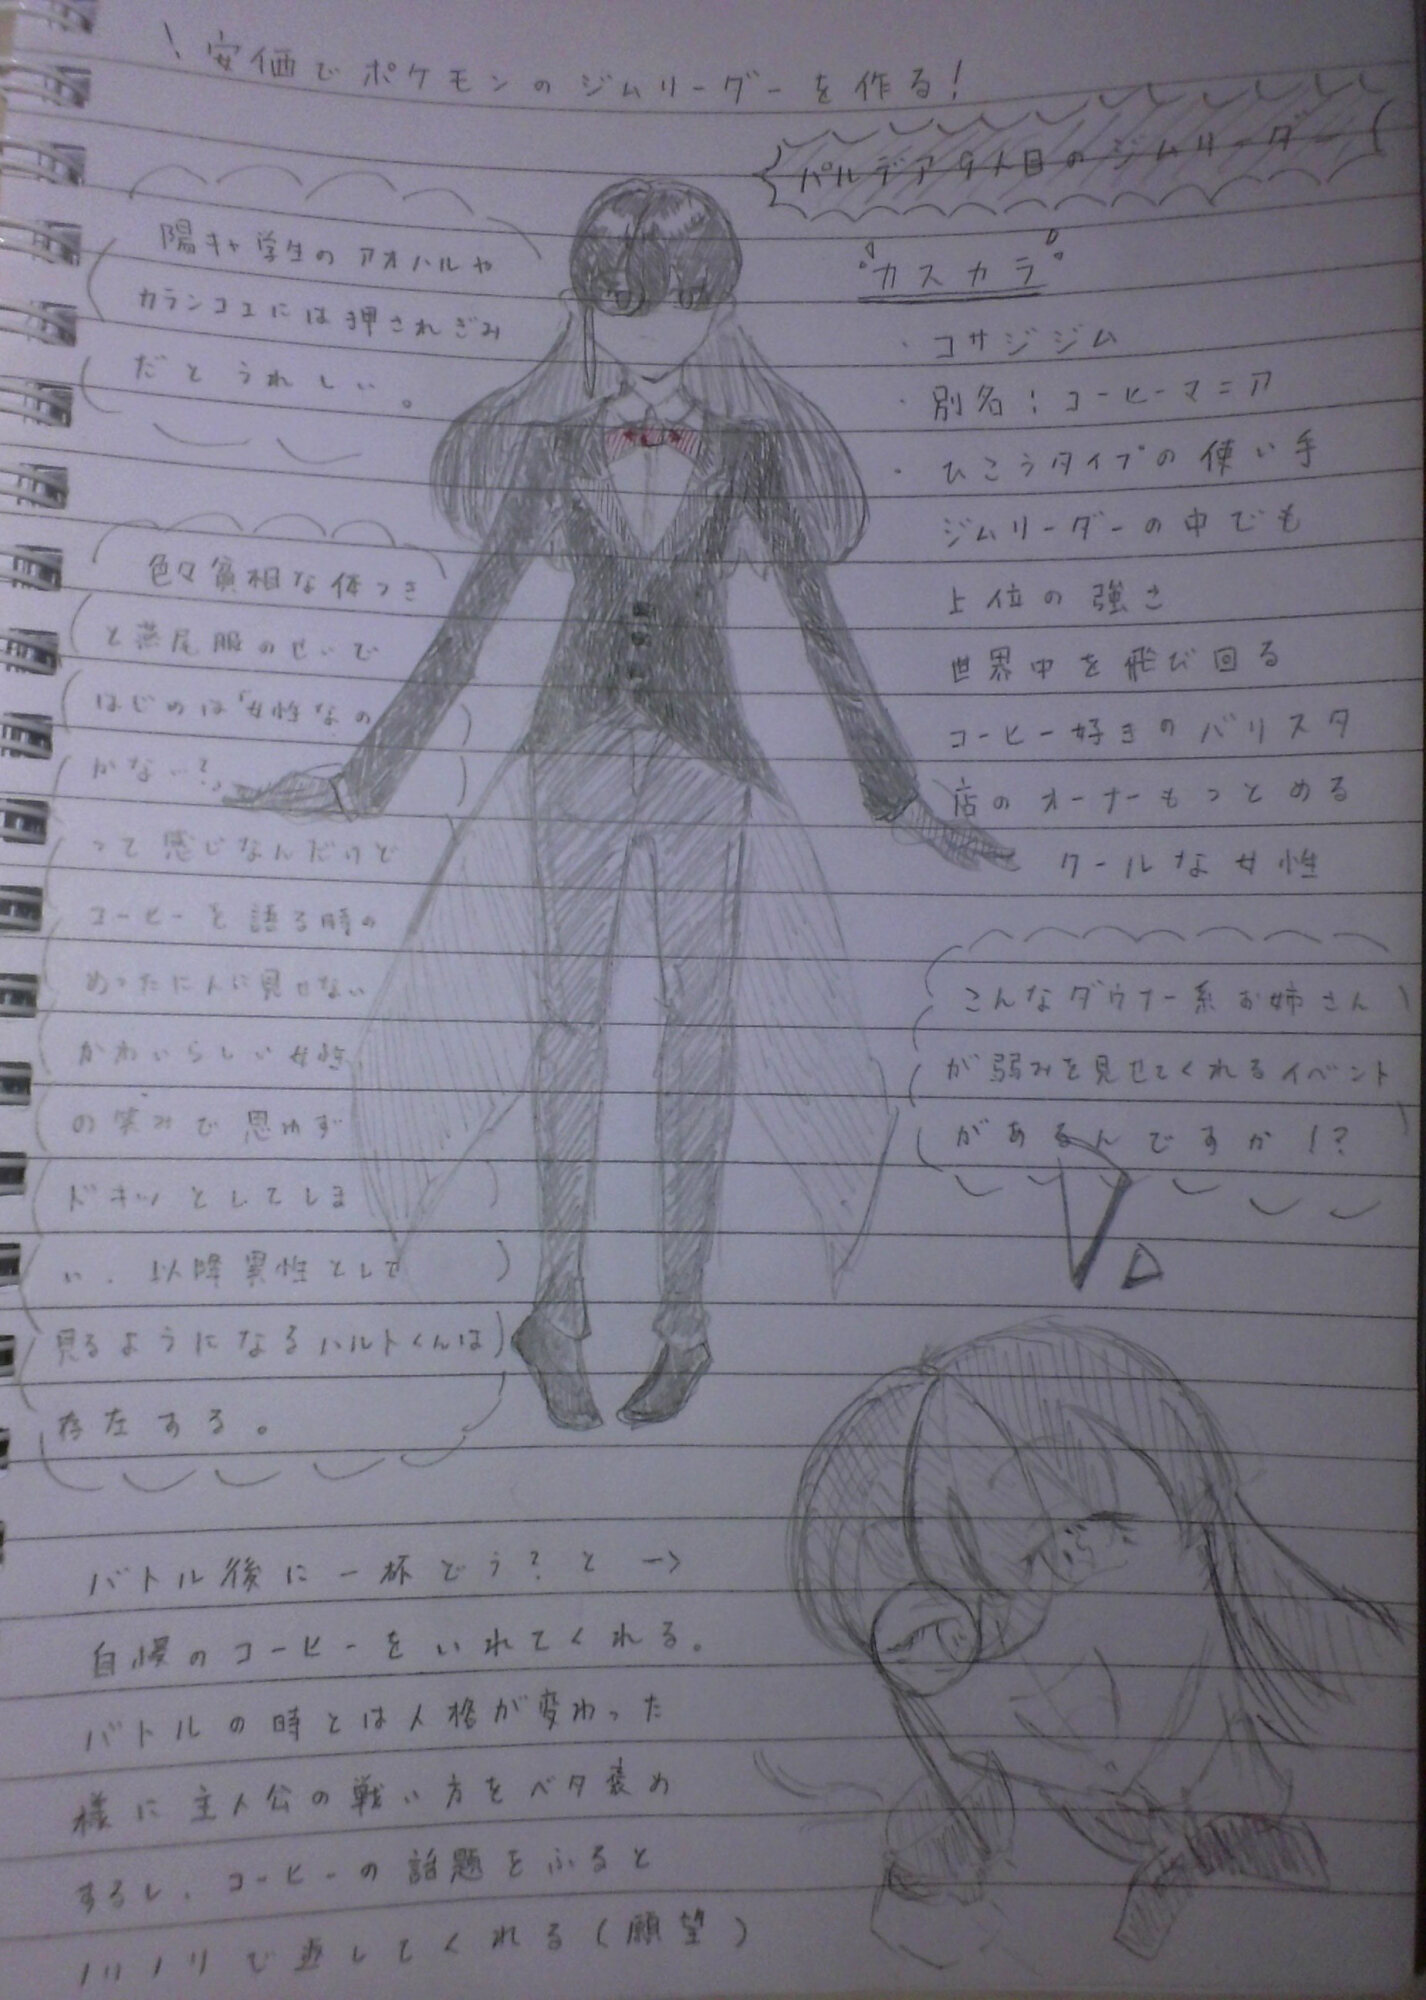 \安価でポケモンのジムリーダーを作る!
パルデア9人目のジムリーダー
カスカラ
・コサジジム
・別名:コーヒーマニア
・ひこうタイプの使い手
ジムリーダーの中でも
上位の強さ
世界中を飛び回る
コーヒー好きのバリスタ
店のオーナーもつとめる
クールな女性
陽キャ学生のアオハルや
カランコエには押されぎみ
だとうれしい。
色々貧相な体つき
と燕尾服のせいで
はじめは「女性なの
かな…?」
って感じなんだけど
コーヒーを語る時の
めったに人に見せない
かわいらしい女性
の笑みで思わず
ドキッとしてしま
い、以降異性として
見るようになるハルトくんは
存在する。
こんなダウナー系お姉さん
が弱みを見せてくれるイベント
があるんですか!?
バトル後に一杯どう?と→
自慢のコーヒーをいれてくれる。
バトルの時とは人格が変わった
様に主人公の戦い方をベタ褒め
するし、コーヒーの話題をふると
ノリノリで返してくれる(願望)